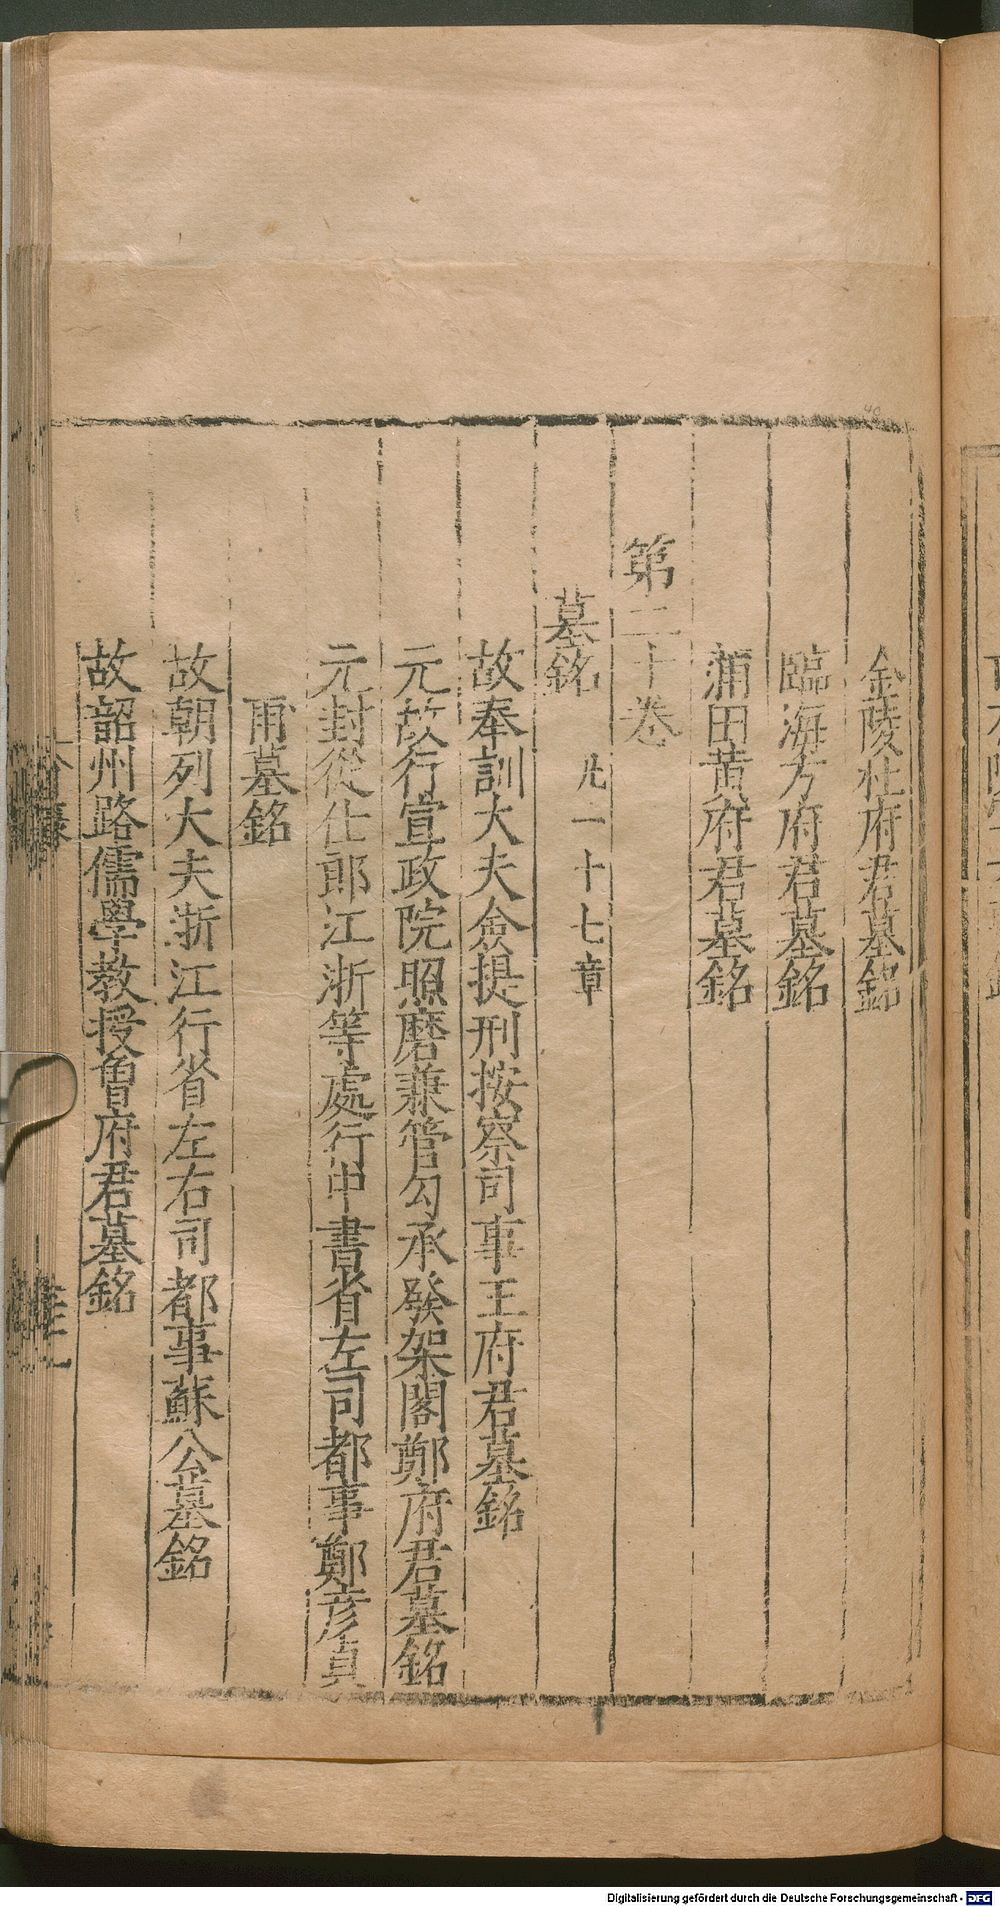 金陵杜府君墓銘
臨海方府君墓銘
蒲田黃府君墓銘
第二十卷
墓銘 凡一十七章
故奉訓大夫僉提刑按察司事王府君墓銘
元故行宣政院照磨兼管勾承發架閣鄭府君墓銘
元封從仕郎江浙等處行中書省左司都事鄭彥貞
甫墓銘
故朝列大夫浙江行省左右司都事蘇公墓銘
故韶州路儒學教授曾府君墓銘
40
Digitalisierung gefördert durch die Deutsche Forschungsgemeinschaft - DFG